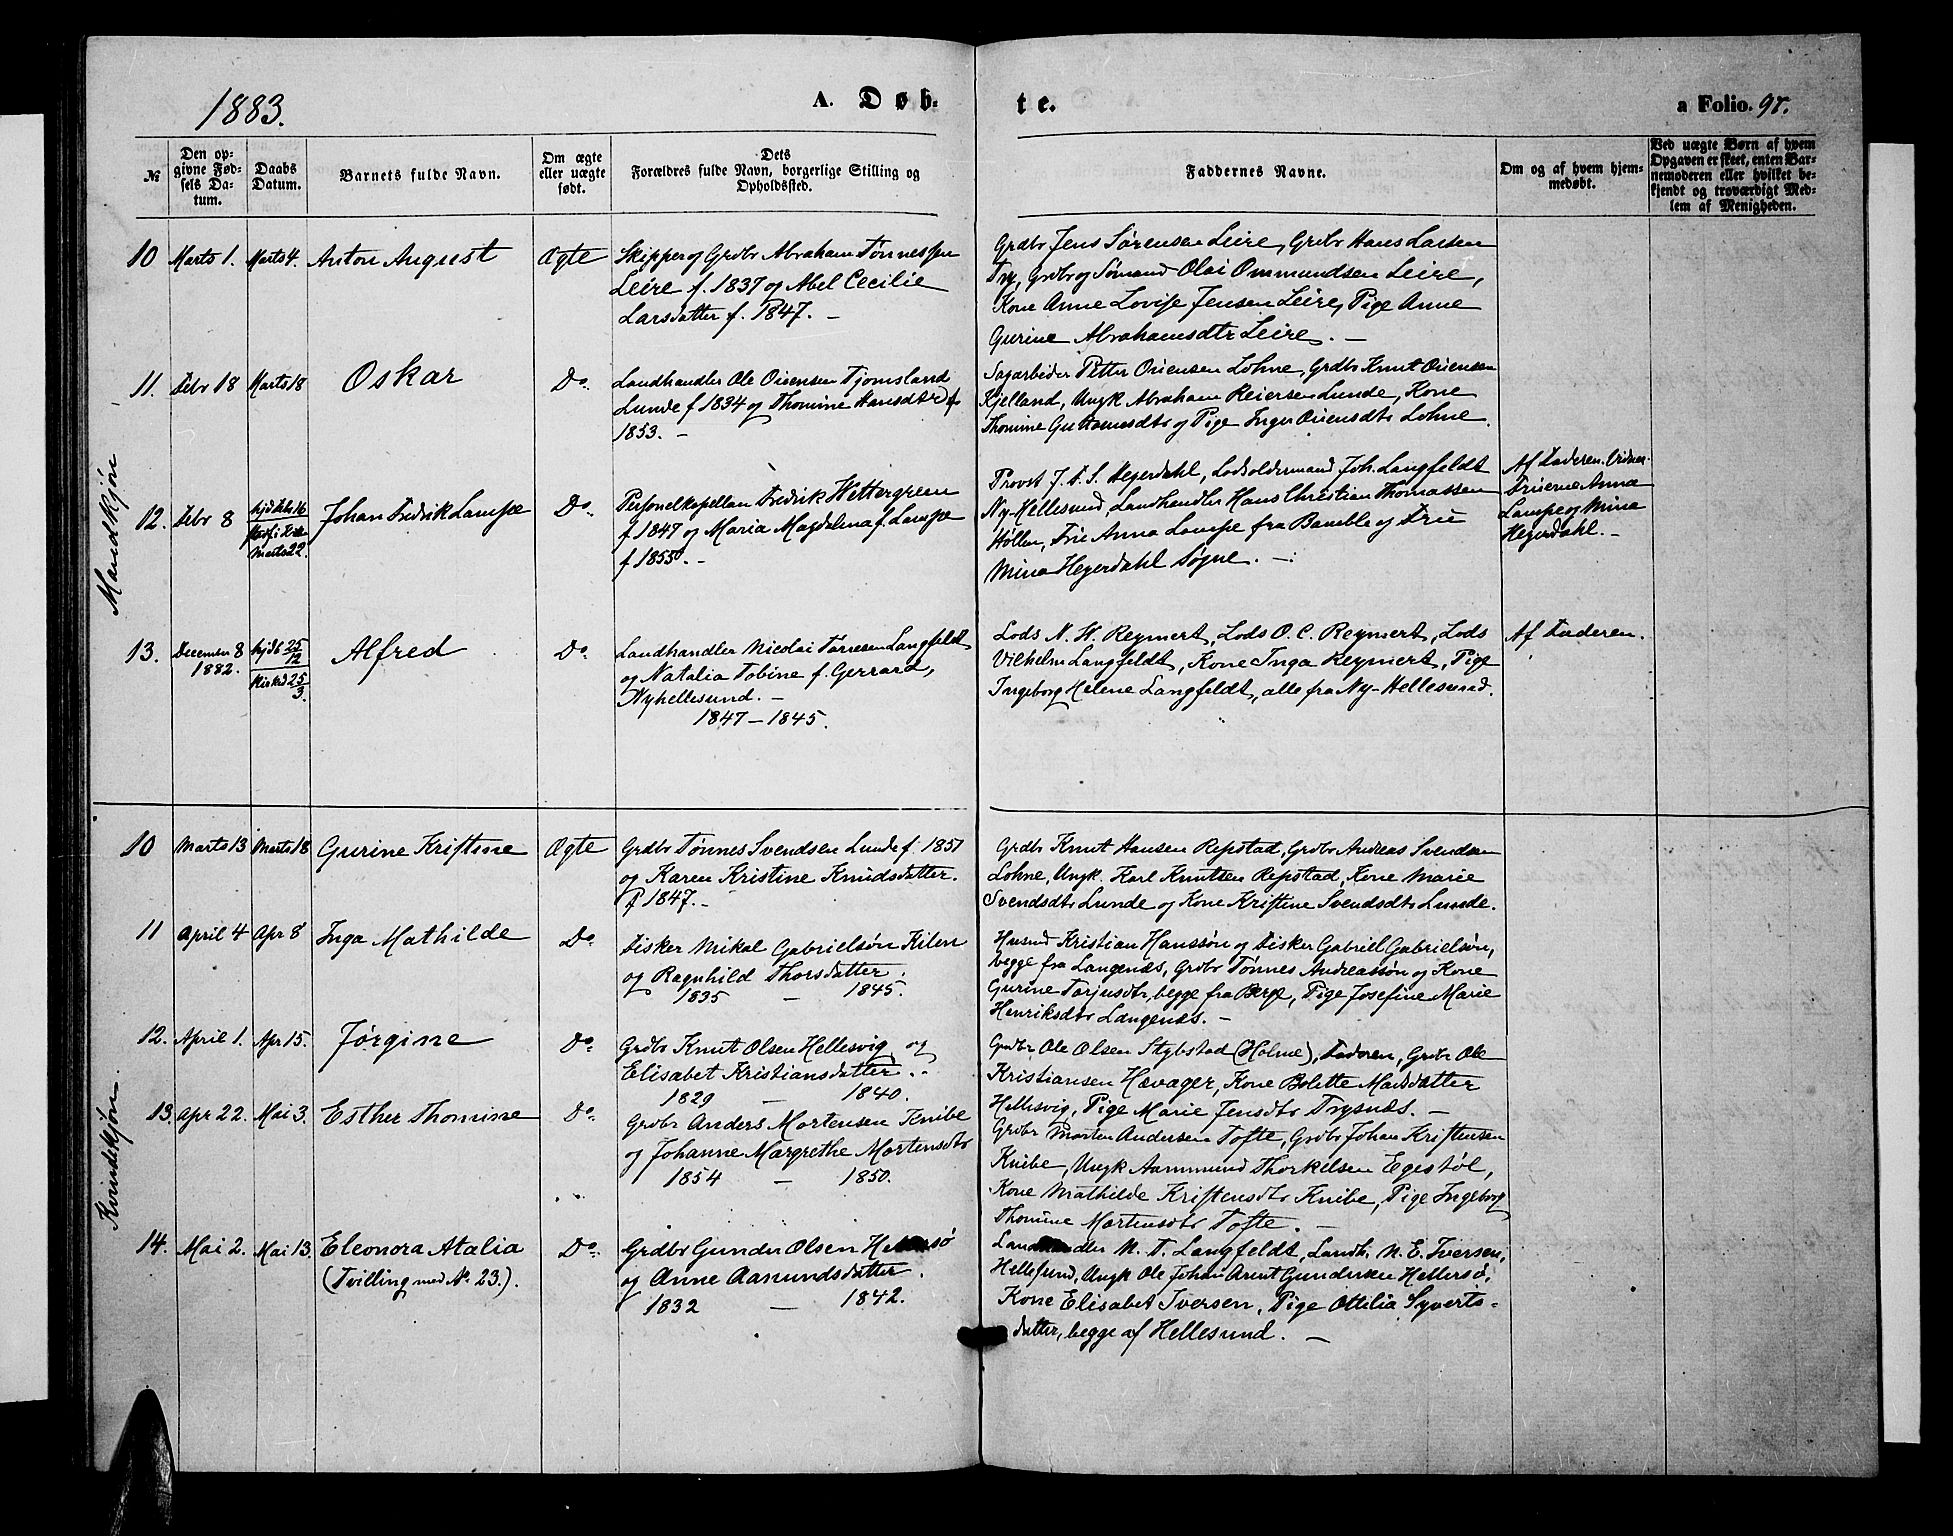 1883.
A. Døb-
te.
a Folio. 98.
№
Den op-
givne Fød-
sels Da-
tum.
Daabs
Datum.
Barnets fulde Navn.
Om ægte
eller uægte
født.
Dets
Forældres fulde Navn, borgerlige Stilling og
Opholdssted.
Faddernes Navne.
Om og af hvem hjem-
medøbt.
Ved uægte Børn af hvem
Opgaven er skeet, enten Bar-
nemoderen eller hvilket be-
kjendt og troværdigt Med-
lem af Menigheden.
Mandkjøn
10 Marts 1. Marts 4. Anton August Ægte
Skipper og Grdbr Abraham Tønnessen
Leire f. 1837 og Abel Cecilie
Larsdatter f. 1847. –
Grdbr Jens Sørensen Leire, Grdbr Hans Larsen
Try, Grdbr og Sømand Olai Ommundsen Leire,
Kone Anne Lovise Jensen Leire, Pige Anne
Gurine Abrahamsdtr Leire. –
11. Febr 18 Marts 18 Oskar Do.
Landhandler Ole Oiensen Tjomsland
Lunde f 1834 og Thomine Hansdtr f
1853. –
Sagarbeider Petter Oiensen Lohne, Grdbr Knut Oiensen
Kjelland, Ungk Abraham Reiersen Lunde, Kone
Thomine Guttormsdtr og Pige Inger Oiensdtr Lohne.
12. Febr 8
hjd Feb 16
Marts 22.
Johan Fredrik Lampe Do.
Personelkapellan Fredrik Wettergreen
f 1847 og Maria Magdelena f. Lampe
f 1855. –
Provst J. F. S. Heyerdahl, Lodsoldermand Joh. Langfeldt
Ny-Hellesund, Landhandler Hans Christian Thomassen
Høllen, Frk Anna Lampe fra Bamble og Frk
Mina Heyerdahl Søgne. –
Af Faderen. Vidner
Anna
Lampe og Mina
Heyerdahl. –
13. Decemer 8
1882.
hjd 25/12
Kirkd 25/3.
Alfred Do.
Landhandler Nicolai Tørresen Langfeldt
og Natalia Tobine f. Gerrard,
Nyhellesund. –
1847 – 1845.
Lods N. H. Reymert, Lods O. C. Reymert, Lods
Vilhelm Langfeldt, Kone Inga Reymert, Pige
Ingeborg Helene Langfeldt, alle fra Ny-Hellesund.
Af Faderen.
Kvindekjøn.
10 Marts 13 Marts 18 Gurine Kristine Ægte
Grdbr Tønnes Svendsen Lunde f. 1851
og Karen Kristine Knudsdatter.
f 1847. –
Grdbr Knut Hansen Repstad, Grdbr Andreas Svendsen
Lohne, Ungk. Karl Knutsen Repstad, Kone Marie
Svendsdtr Lunde og Kone Kristine Svendsdtr Lunde.
11 April 4 Apr 8 Inga Mathilde Do
Fisker Mikal Gabrielsøn Kilen
og Ragnhild Thorsdatter.
1835 – 1845.
Husmd Kristian Hanssøn og Fisker Gabriel Gabrielsøn,
begge fra Langenæs, Grdbr Tønnes Andreassøn og Kone
Gurine Torjusdtr, begge fra Berge, Pige Josefine Marie
Henriksdtr Langenæs. –
12. April 1. Apr 15. Jørgine Do.
Grdbr Knut Olsen Hellesvig og
Elisabet Kristiansdatter.
1829 – 1840.
Grdbr Ole Olsen Stybstad (Holme), Faderen, Grdbr Ole
Kristiansen Hævager, Kone Bolette Madsdatter
Hellesvig, Pige Marie Jensdtr Trysnæs. –
13. Apr 22. Mai 3. Esther Thomine Do.
Grdbr Anders Mortensen Knibe
og Johanne Margrethe Mortensdtr
1854 – 1850.
Grdbr Morten Andersen Tofte, Grdbr Johan Kristensen
Knibe, Ungk Aammund Thorkelsen Egestøl,
Kone Mathilde Kristensdtr Knibe, Pige Ingeborg
Thomine Mortensdtr Tofte. –
14. Mai 2. Mai 13. Eleonora Atalia
(Tvilling med No. 23.).
Do.
Grdbr Gunder Olsen Hellersø
og Anne Aanundsdatter.
1832 – 1842.
Landhandler N. T. Langfeldt, Landh. N. E. Iversen,
Hellesund, Ungk Ole Johan Arent Gundersen Hellersø,
Kone Elisabet Iversen, Pige Ottilia Syverts-
datter, begge af Hellesund. –